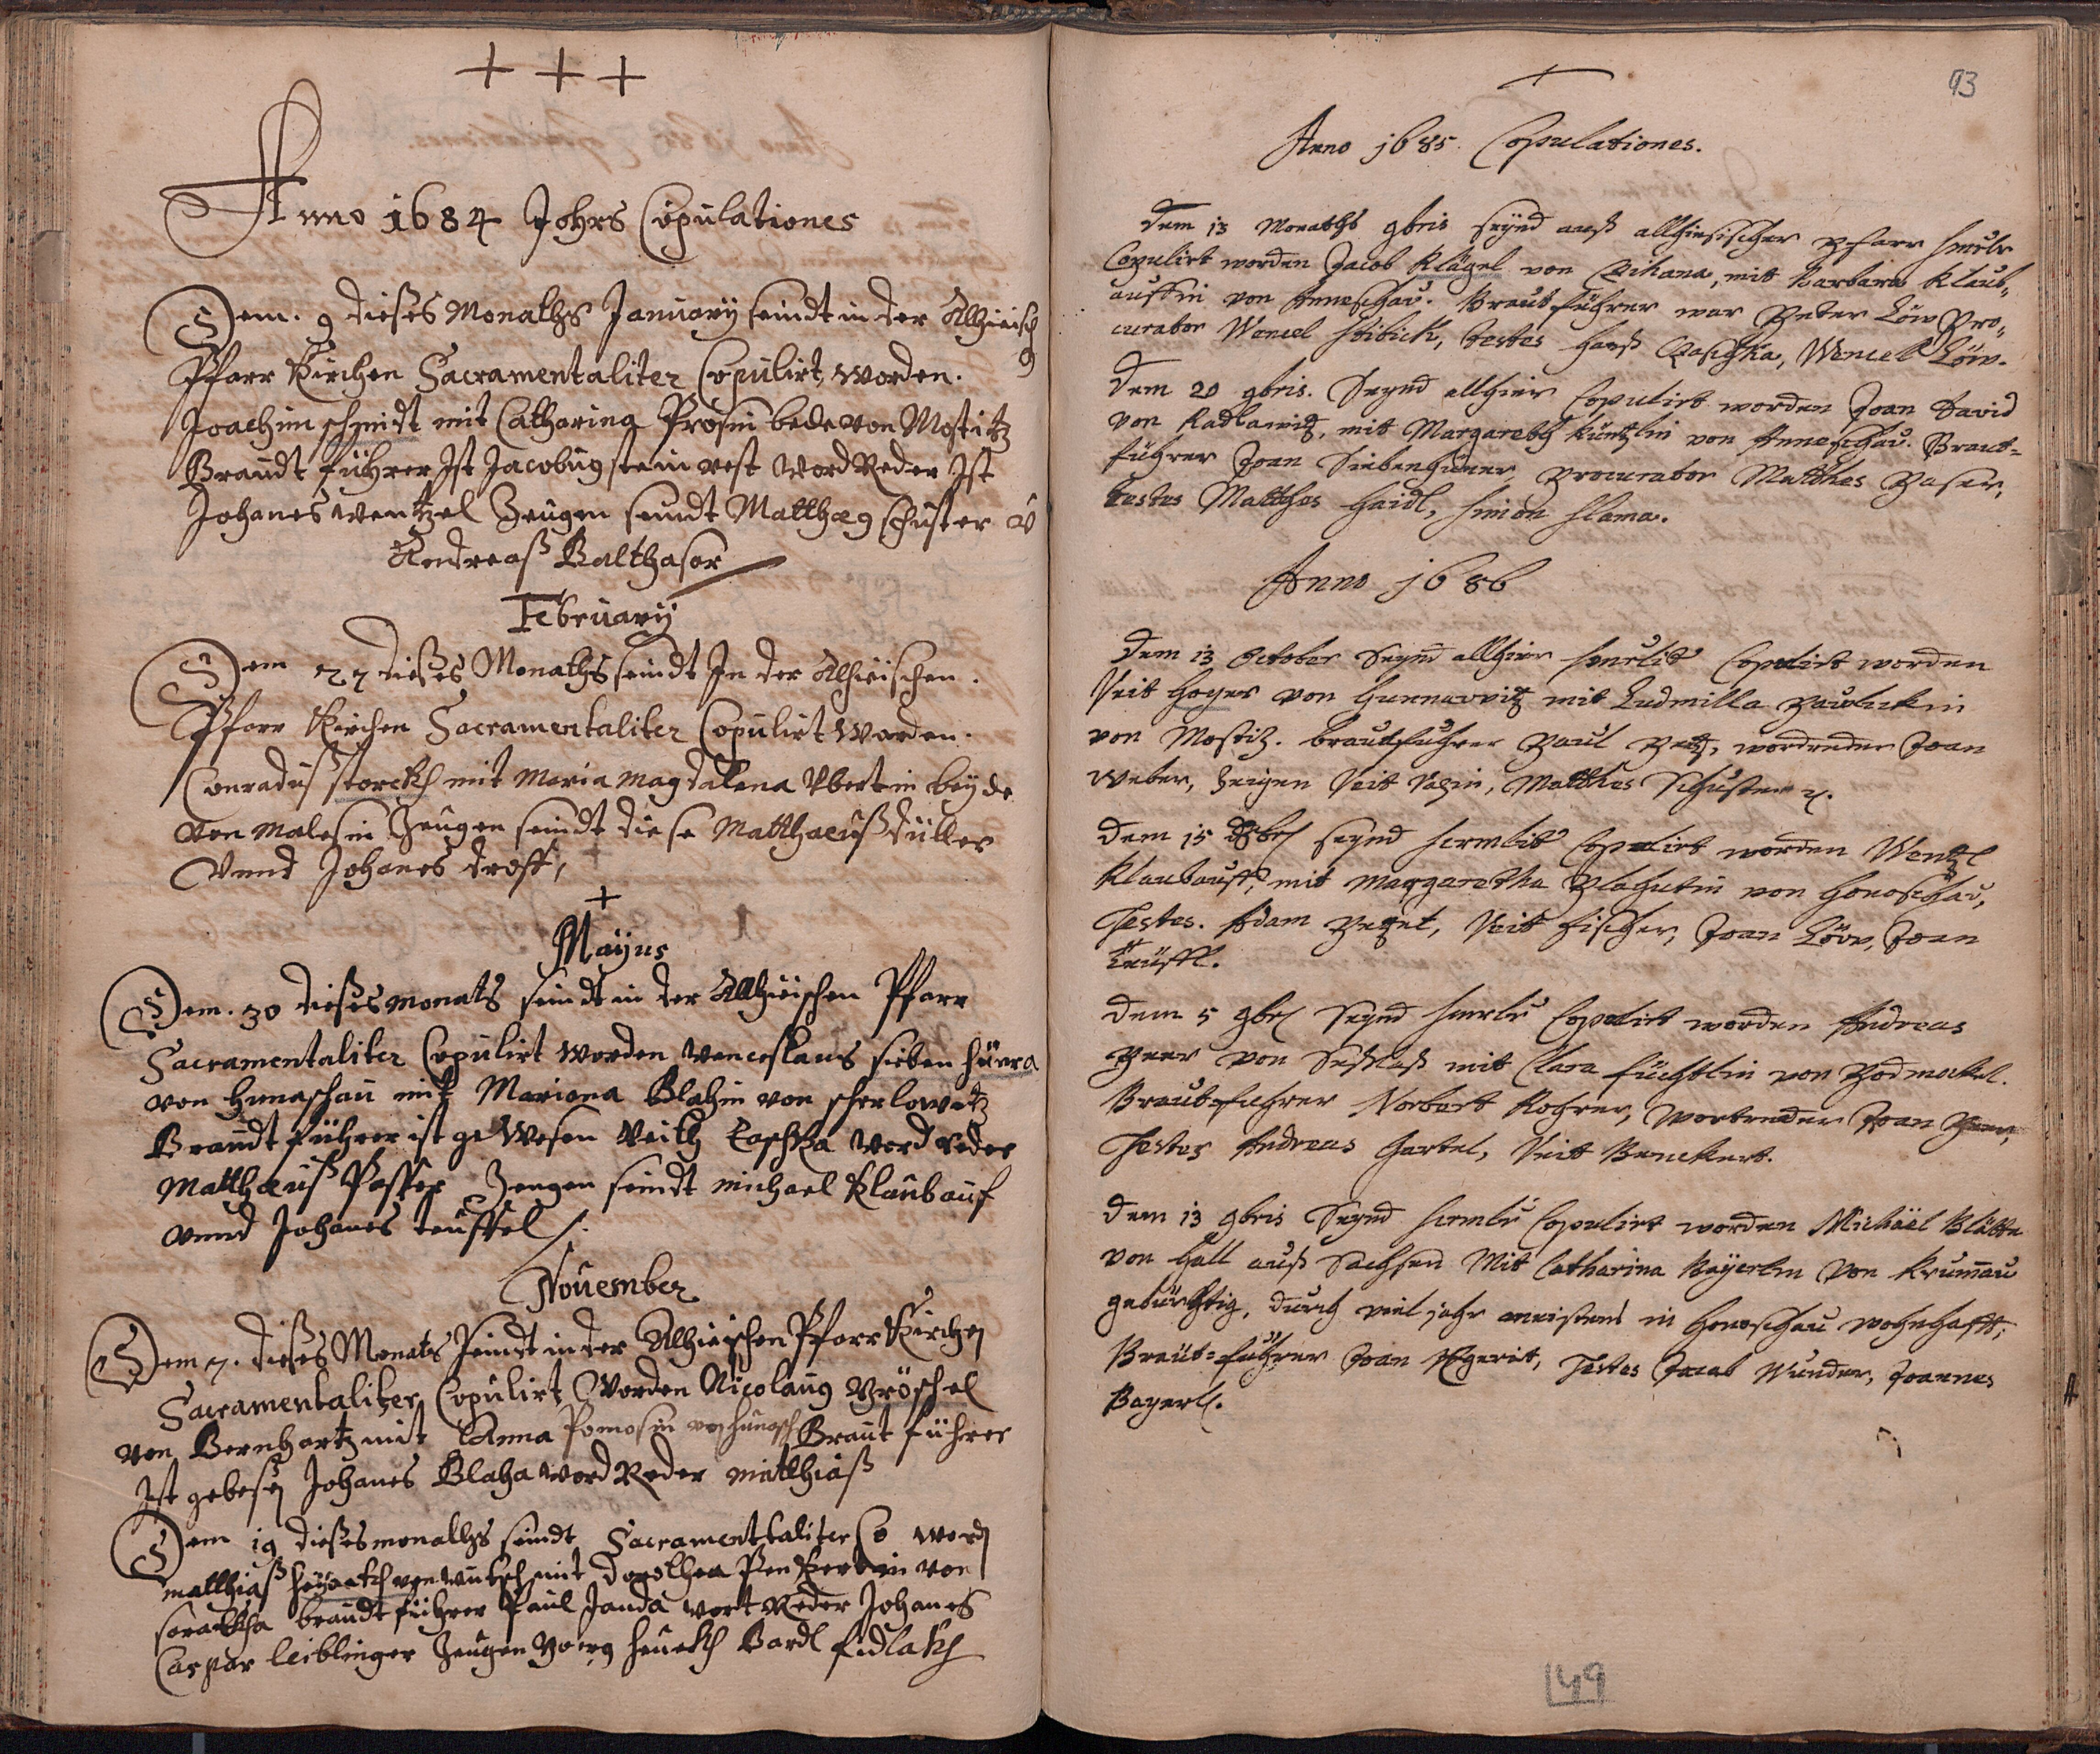 + + +
Anno 1684 Johrs Copulationes
Dem. 9 dießes Monaths January seindt in der Alhieisch
Pfarr Kirchen Sacramentaliter Copulirt, worden.
Joachim schmidt mit Catharina Prosin bede von Mostitz
Braudt führer Ist Jacobus steinrest Word Reder Ist
Johanes wentzel Zeugen seindt Matthæ9 schuster v̄
Andreaß Balthasor
February
Dem 22 dießes Monaths seindt In der Alhieischen.
Pfarr Kirchen Sacramentaliter Copulirt Worden.
Conraduß storckh mit Maria Magdalena Obertin beyde
von Malesin Zeugen seindt diese Matthaeuß düller
Vnnd Johanes drost,
+
Mayus
Dem. 30 dießes monats seindt in der Allhieischen Pfarr
Sacramentaliter Copulirt worden Wenceslaus sieben hüner
von Hunaschau mit Mariana Blahin von scherlowitz
Braudt führer ist geWesen Veith Caschka Word Reder
Matthæuß Passer Zeugen seindt michael Klaubauf
vnnd Johanes teuffel /.
November
Dem 7. dießes Monats Seindt in der Alhieischen Pfarr Kirchen
Sacramentaliter Copulirt Worden Nicolaus Vröschel
von Bernhartz mit Anna Pomosin von hunasch Braut führer
Ist gebesen Johanes Blaha Word Reder matthiaß
Dem 19 dießes monaths seindt Sacramenttaliter Co word
matthiaß mit dorothea von
braudt führer Paul Janda Wort Reder Johanes
Caspar leiblinger Zeugen Bardl fidlakh
93
+
Anno 1685. Copulationes.
Dem 13 Monaths 9bris seynd auß allhiesischer Pfarr
Copulirt worden Jacob Klägel von Cikana, mit Barbara Klaub„
auffin von Honoschau. Brautführer war Peter Löw Pro„
curator Wencel Stibick, testes Hanß Caschka, Wencel Löw.
Dem 20 9bris. Seynd allhier Copulirt worden Joan David
von Radlawitz, mit Margareth Küntzlin von Honoschau. Braut=
führer Joan Siebenhüner, Procurator Matthes Paser,
testes Matthes Haidl, Simon Slama.
Anno 1686
Dem 13 October Seynd allhier Copulirt worden
Veit Hoyer von Hunnarvitz mit Ludmilla Pawlickin
von Mostiz. Brautführer Paul wordreder Joan
Weber, Zeigen Veit Matthes Schuster
Dem 15 seynd Copulirt worden Wentzl
Klaubauff, mit Margaretha Plahutin von Honoschau,
Testes. Adam Petzet, Veit Fischer, Joan Löw, Joan
Teüffl.
Dem 5 9br Seynd Copulirt worden Andreas
Peer von mit Clara Füchtlin von Podmokel.
Brautführer Norbert Rohrer, Wortreder Joan
Testes Andreas Hartel, Veit Benckert.
Dem 13 9bris Seynd Copulirt worden Michäel Blätte
von Hall auß Sachsen Mit Catharina Bayerlin von Krummau
gebürthig, durch viel jahr meistens in Honoschau wohnhafft;
Braut=führer Joan Testes Jacob Wunder, Joannes
Bayerl.
149